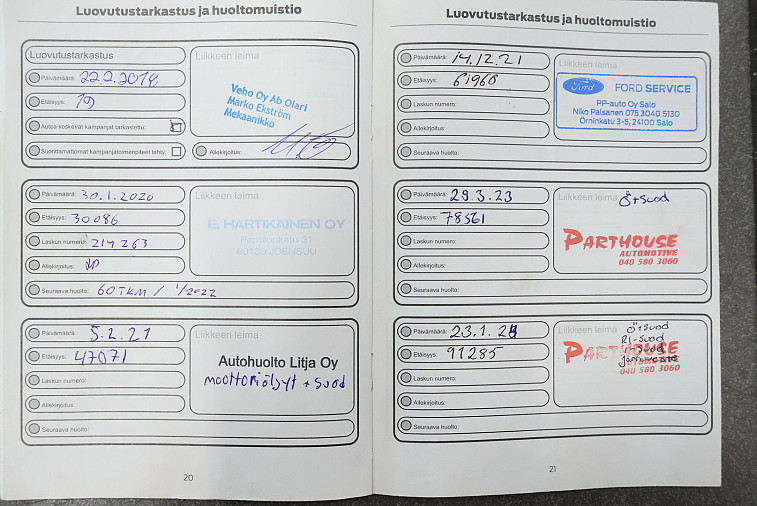 Luovutustarkastus ja huoltomuistio
Luovutustarkastus
Päivämäärä: 22.2.2018
Etäisyys: 19
Autoa koskevat kampanjat tarkastettu:
Suorittamattomat kampanjatoimenpiteet tehty:
Liikkeen leima
Veho Oy Ab Olari
Marko Ekström
Mekaanikko
Allekirjoitus:
Päivämäärä: 30.1.2020
Etäisyys: 30086
Laskun numero: 214263
Allekirjoitus:
Seuraava huolto: 60TKM / 1/2022
Liikkeen leima
E. HARTIKAINEN OY
Parrialankatu 31
80130 JOENSUU
Päivämäärä: 5.2.21
Etäisyys: 47071
Laskun numero:
Allekirjoitus:
Seuraava huolto:
Liikkeen leima
Autohuolto Litja Oy
moottoriöljyt + suod
20
Luovutustarkastus ja huoltomuistio
Päivämäärä: 14.12.21
Etäisyys: 61960
Laskun numero:
Allekirjoitus:
Seuraava huolto:
Liikkeen leima
Ford FORD SERVICE
PP-auto Oy Salo
Niko Palsanen 075 3040 5130
Örninkatu 3-5, 24100 Salo
Päivämäärä: 29.3.23
Etäisyys: 78561
Laskun numero:
Allekirjoitus:
Seuraava huolto:
Liikkeen leima Ö+suod
PARTHOUSE
AUTOMOTIVE
040 580 3060
Päivämäärä: 23.1.24
Etäisyys: 91285
Laskun numero:
Allekirjoitus:
Seuraava huolto:
Liikkeen leima Ö+suod
RI-suod
I-suod
PARTHOUSE
040 580 3060
21